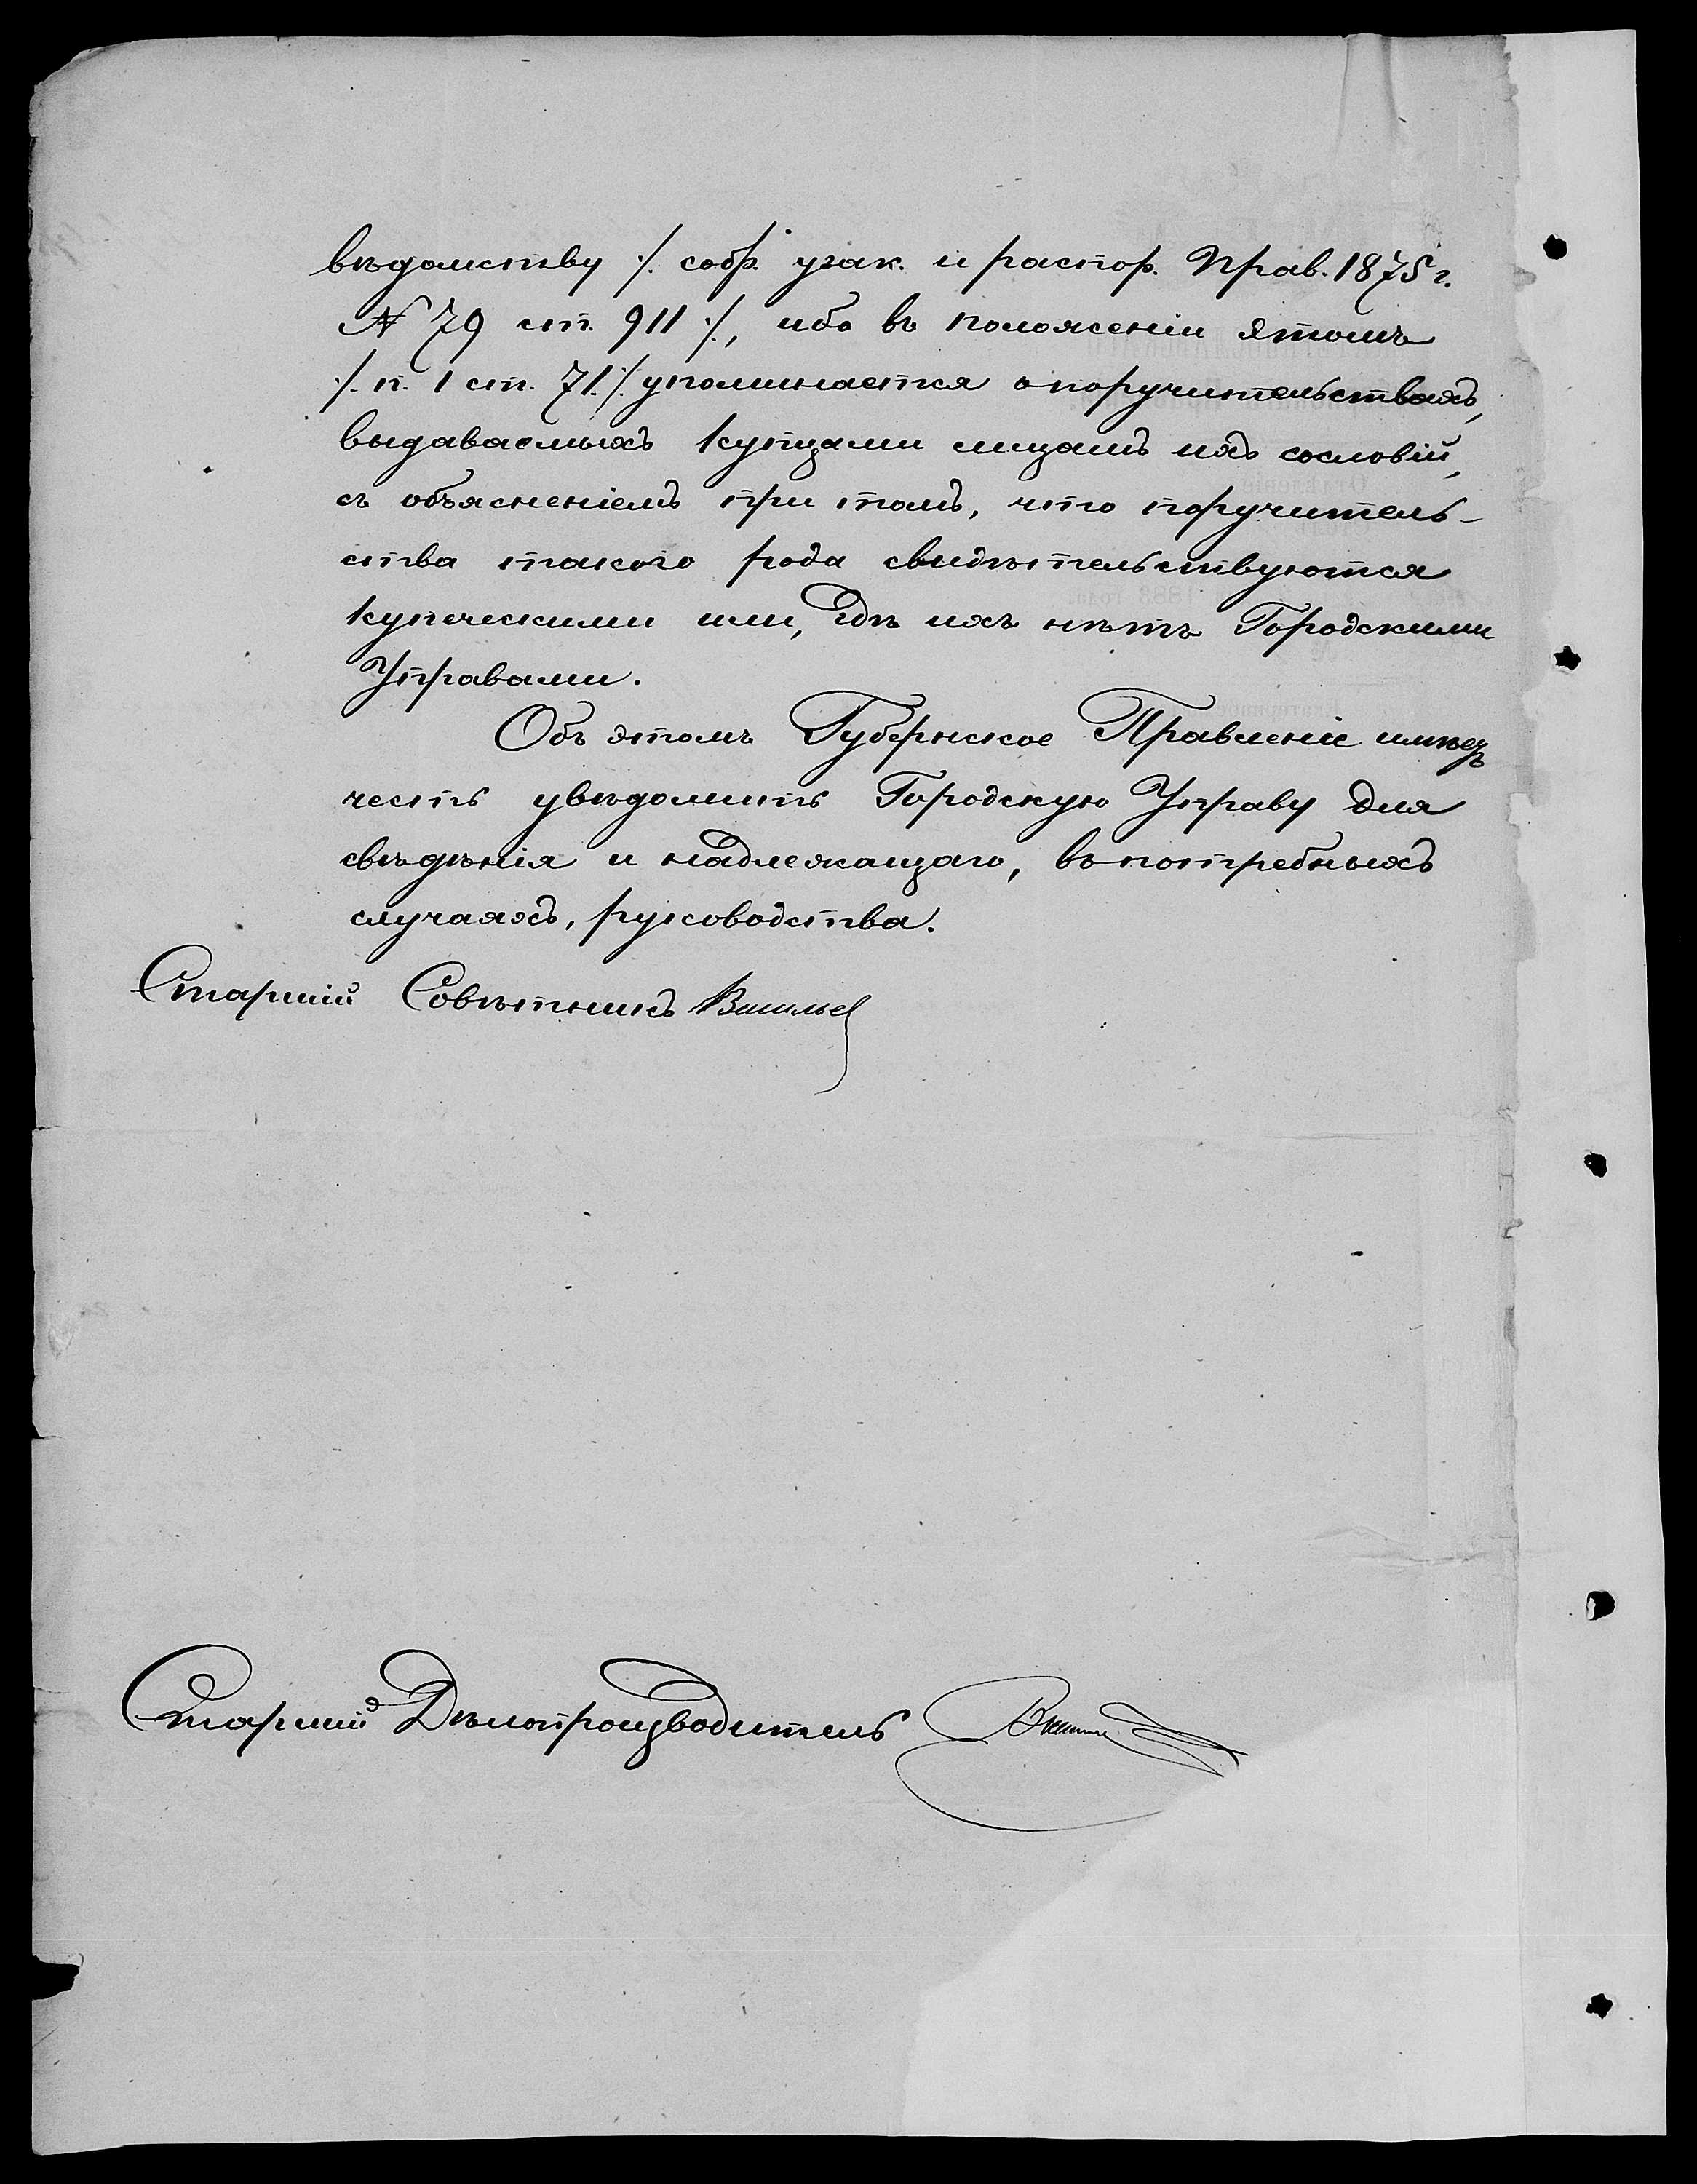 вѣдомству /. собр. узак. и распор. Прав. 1875 г.
№ 79 ст. 911 ./, ибо въ положеніи этомъ
/. п. 1 ст. 71 ./ упоминается о поручительствахъ,
выдаваемыхъ купцами лицамъ ихъ сословій,
съ объясненіемъ при томъ, что поручитель-
ства такого рода свидѣтельствуются
купеческими или, гдѣ ихъ нѣтъ Городскими
Управами.
Объ этомъ Губернское Правленіе имѣетъ
честь увѣдомить Городскую Управу для
свѣдѣнія и надлежащаго, въ потребныхъ
случаяхъ, руководства.
Старшій Совѣтникъ
Старшій Дѣлопроизводитель